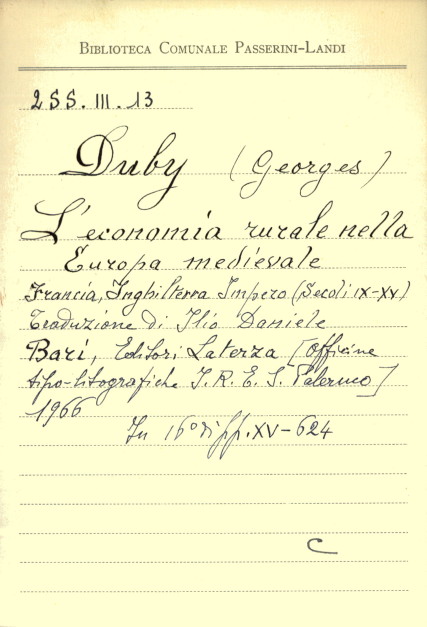 BIBLIOTECA COMUNALE PASSERINI-LANDI
2SS. III. 13
Duby (Georges)
L'economia rurale nella
Europa medievale
Francia, Inghilterra Impero (Secoli IX-XV)
Traduzione di Ilio Daniele
Bari, Editori Laterza [Officine
tipo-litografiche I.R.E.S. Palermo]
1966
In 16° di pp. XV-624
C